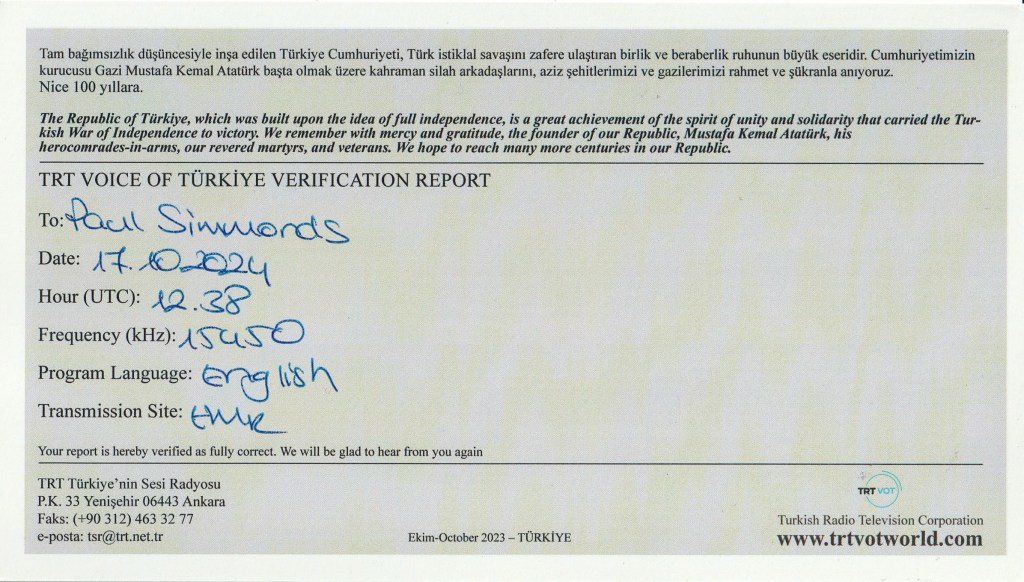 Tam bağımsızlık düşüncesiyle inşa edilen Türkiye Cumhuriyeti, Türk istiklal savaşını zafere ulaştıran birlik ve beraberlik ruhunun büyük eseridir. Cumhuriyetimizin
kurucusu Gazi Mustafa Kemal Atatürk başta olmak üzere kahraman silah arkadaşlarını, aziz şehitlerimizi ve gazilerimizi rahmet ve şükranla anıyoruz.
Nice 100 yıllara.
The Republic of Türkiye, which was built upon the idea of full independence, is a great achievement of the spirit of unity and solidarity that carried the Tur-
kish War of Independence to victory. We remember with mercy and gratitude, the founder of our Republic, Mustafa Kemal Atatürk, his
herocomrades-in-arms, our revered martyrs, and veterans. We hope to reach many more centuries in our Republic.
TRT VOICE OF TÜRKİYE VERIFICATION REPORT
To: Paul Simmonds
Date: 17.10.2024
Hour (UTC): 12.38
Frequency (kHz): 15450
Program Language: English
Transmission Site: EMR
Your report is hereby verified as fully correct. We will be glad to hear from you again
TRT Türkiye'nin Sesi Radyosu
P.K. 33 Yenişehir 06443 Ankara
Faks: (+90 312) 463 32 77
e-posta: tsr@trt.net.tr
Ekim-October 2023 – TÜRKİYE
TRT VOT
Turkish Radio Television Corporation
www.trtvotworld.com